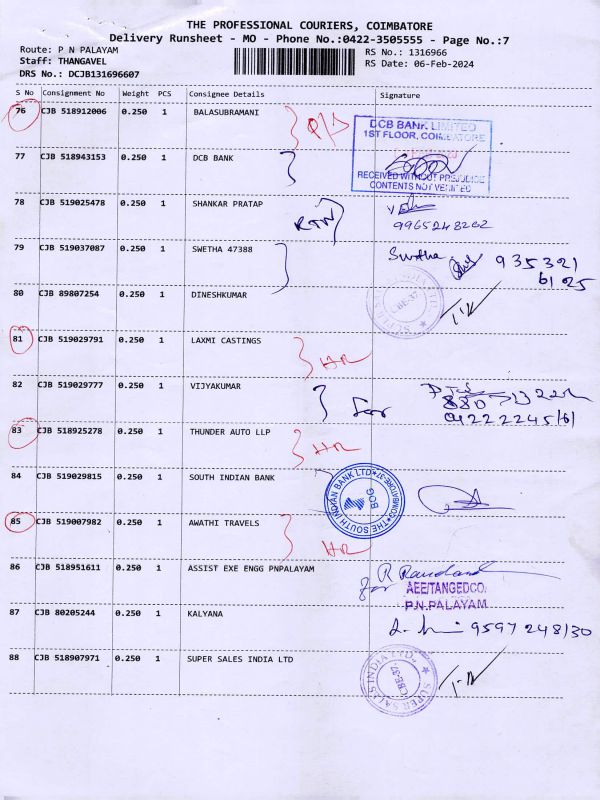 THE PROFESSIONAL COURIERS, COIMBATORE
Delivery Runsheet - MO - Phone No.:0422-3505555 - Page No.:7
Route: P N PALAYAM
RS No.: 1316966
Staff: THANGAVEL
RS Date: 06-Feb-2024
DRS No.: DCJB131696607
S No Consignment No Weight PCS Consignee Details Signature
76 CJB 518912006 0.250 1 BALASUBRAMANI
DCB BANK LIMITED
1ST FLOOR, COIMBATORE
77 CJB 518943153 0.250 1 DCB BANK
RECEIVED WITHOUT PREJUDICE
CONTENTS NOT VERIFIED
78 CJB 519025478 0.250 1 SHANKAR PRATAP
9965248262
79 CJB 519037087 0.250 1 SWETHA 47388 Swetha 935321
6125
80 CJB 89807254 0.250 1 DINESHKUMAR
81 CJB 519029791 0.250 1 LAXMI CASTINGS
HR
82 CJB 519029777 0.250 1 VIJYAKUMAR
83 CJB 518925278 0.250 1 THUNDER AUTO LLP
HR
84 CJB 519029815 0.250 1 SOUTH INDIAN BANK
THE SOUTH INDIAN BANK LTD COIMBATORE-37
BOG
85 CJB 519007982 0.250 1 AWATHI TRAVELS
HR
86 CJB 518951611 0.250 1 ASSIST EXE ENGG PNPALAYAM
for AEE/TANGEDCO
P.N.PALAYAM
87 CJB 80205244 0.250 1 KALYANA
9597248130
88 CJB 518907971 0.250 1 SUPER SALES INDIA LTD
SUPER SALES INDIA LTD.
CBE-37